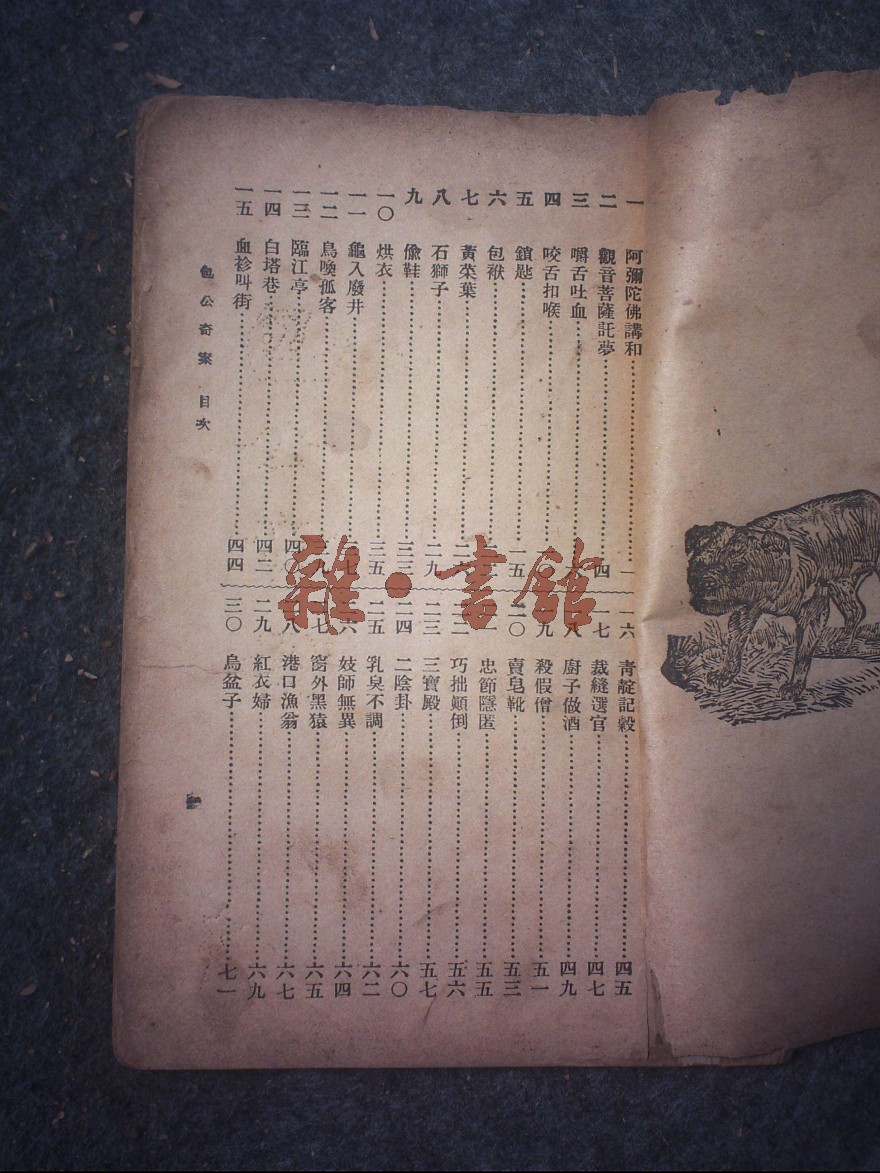 一 阿彌陀佛講和 一
二 觀音菩薩託夢 四
三 嚼舌吐血
四 咬舌扣喉
五 鎖匙 一五
六 包袱
七 黃菜葉
八 石獅子 二九
九 偷鞋 三三
一〇 烘衣 三五
一一 龜入廢井
一二 鳥喚孤客
一三 臨江亭 四〇
一四 白塔巷 四二
一五 血衫叫街 四四
一六 靑靛記穀 四五
一七 裁縫選官 四七
一八 廚子做酒 四九
一九 殺假僧 五一
二〇 賣皂靴 五三
忠節隱匿 五五
巧拙顚倒 五六
二三 三寶殿 五七
二四 二陰卦 六〇
二五 乳臭不調 六二
二六 妓師無異 六四
二七 窗外黑猿 六五
二八 港口漁翁 六七
二九 紅衣婦 六九
三〇 烏盆子 七一
包公奇案 目次
雜·書館